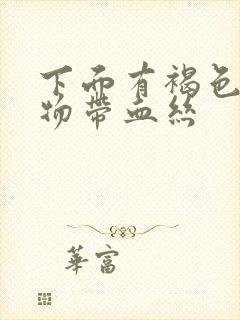 下面有褐色
物帶血絲
華富